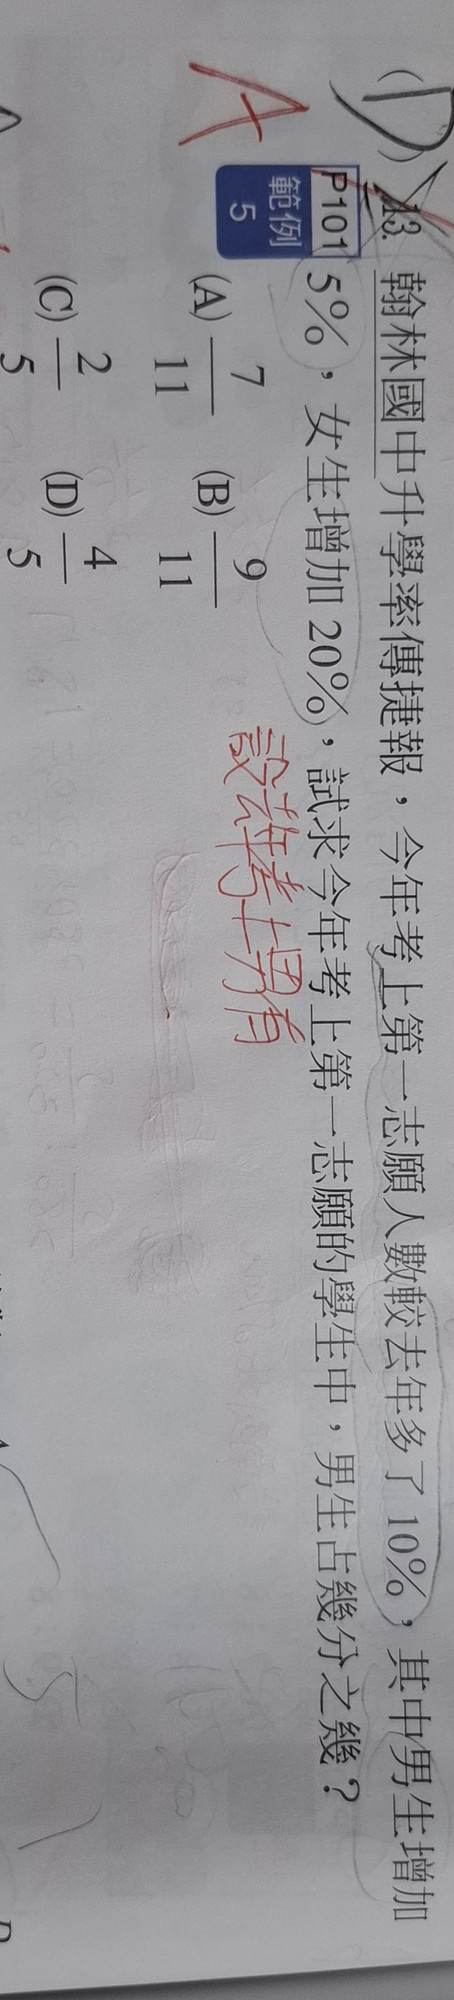 (D) 13. 翰林國中升學率傳捷報，今年考上第一志願人數較去年多了 10%，其中男生增加
P101 5%，女生增加 20%，試求今年考上第一志願的學生中，男生占幾分之幾？
範例 5
A
(A) 7/11 (B) 9/11
設去年考上男有
(C) 2/5 (D) 4/5